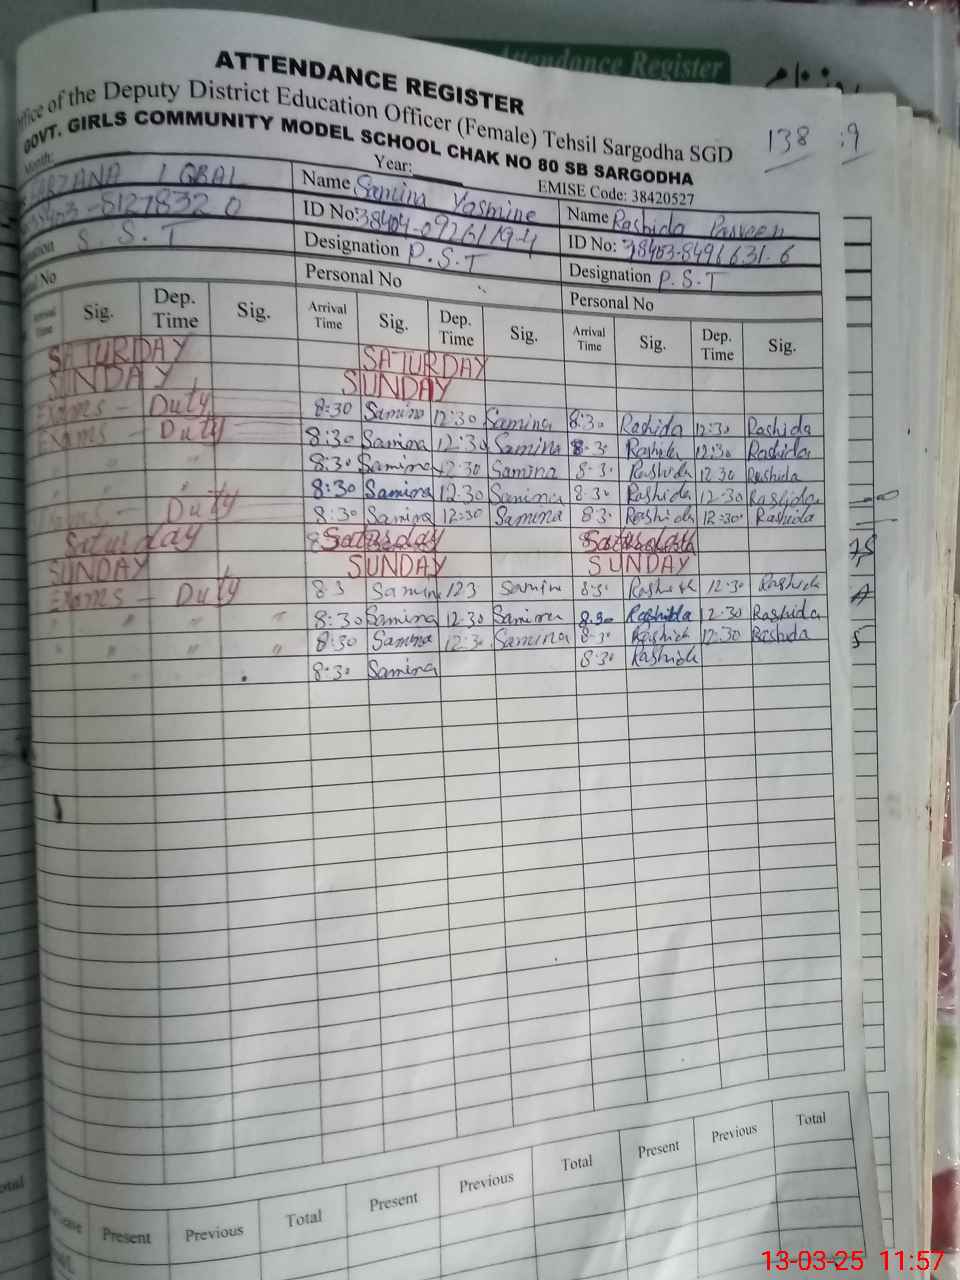 Attendance Register
ATTENDANCE REGISTER
ffice of the Deputy District Education Officer (Female) Tehsil Sargodha SGD
GOVT. GIRLS COMMUNITY MODEL SCHOOL CHAK NO 80 SB SARGODHA
138 :9
Month: Year: EMISE Code: 38420527
FARZANA IQBAL Name Samina Yasmine Name Rashida Parveen
ID No: ID No:
S.S.T Designation P.S.T Designation P.S.T
No Personal No Personal No
Arrival Time Sig. Dep. Time Sig. Arrival Time Sig. Dep. Time Sig. Arrival Time Sig. Dep. Time Sig.
SATURDAY SATURDAY
SUNDAY SUNDAY
Exams - Duty 8:30 Samina 12:30 Samina 8:30 Rashida 12:30 Rashida
Exams - Duty 8:30 Samina 12:30 Samina 8:30 Rashida 12:30 Rashida
" " 8:30 Samina 12:30 Samina 8:30 Rashida 12:30 Rashida
" " 8:30 Samina 12:30 Samina 8:30 Rashida 12:30 Rashida
Exams - Duty 8:30 Samina 12:30 Samina 8:30 Rashida 12:30 Rashida
Saturday Saturday
SUNDAY SUNDAY SUNDAY
Exams - Duty 8:3 Samina 12:3 Samin 8:30 Rashida 12:30 Rashida
" " " 8:30 Samina 12:30 Samina 8:30 Rashida 12:30 Rashida
" " " 8:30 Samina 12:30 Samina 8:30 Rashida 12:30 Rashida
8:30 Samina 8:30 Rashida
Present Previous Total Present Previous Total Present Previous Total
13-03-25 11:57